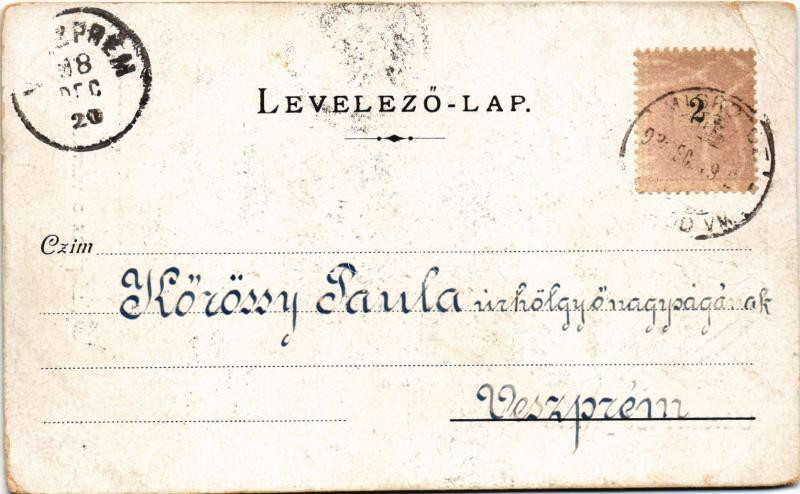 VESZPRÉM
98
DEC
20
LEVELEZŐ-LAP.
2
Czim
Kőrössy Paula úrhölgy őnagyságának
Veszprém